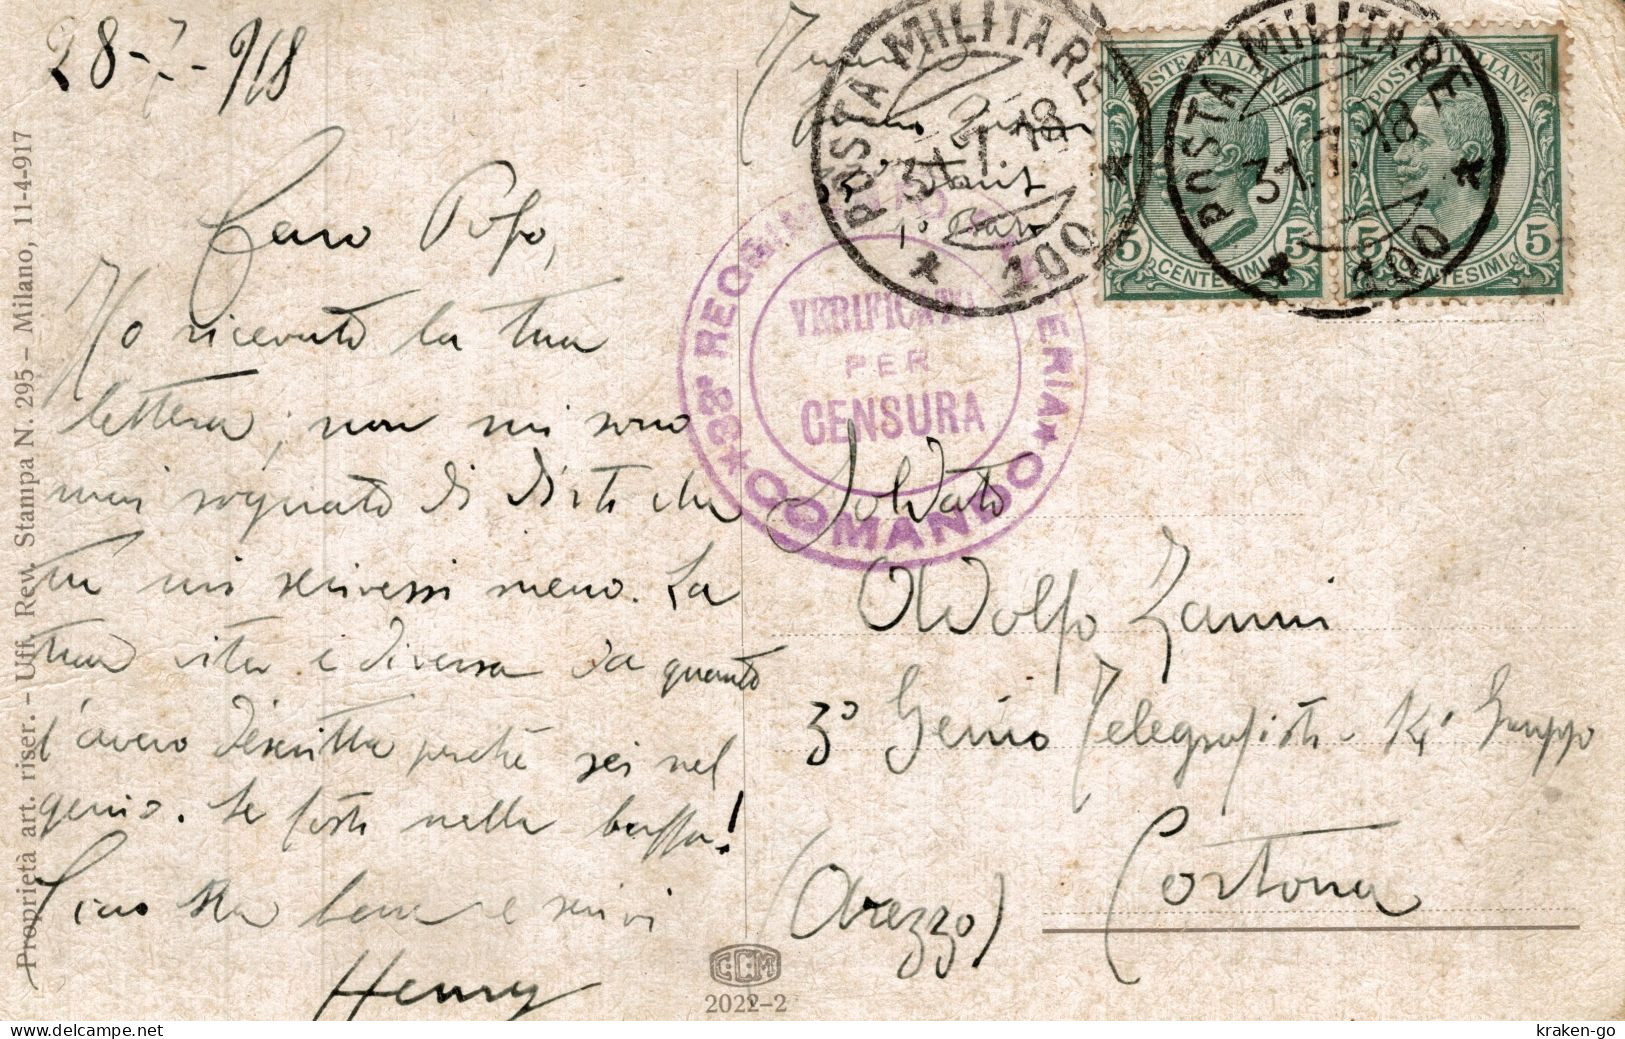 28-7-918
Caro Pofo,
Ho ricevuto la tua
lettera; non mi sono
mai sognato di dirti che
tu mi scrivessi meno. La
tua vita è diversa da quanto
l'avevo descritta perchè sei nel
genio. Se fosti nella buffa!
Ciao sta bene e scrivi
Henry
Proprietà art. riser. - Uff. Rev. Stampa N. 295 - Milano, 11-4-917
POSTA MILITARE
31.7.18
100
POSTA MILITARE
31.7.18
100
POSTE ITALIANE
5 CENTESIMI 5
POSTE ITALIANE
5 CENTESIMI 5
VERIFICATO
PER
CENSURA
COMANDO
Soldato
Adolfo Zanni
3° Genio Telegrafisti - K4 Gruppo
Cortona
(Arezzo)
CCM
2022-2
kraken-go